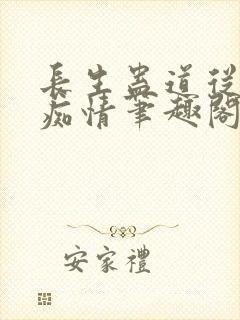 長生蠱道從
痴情筆趣閣
安家禮